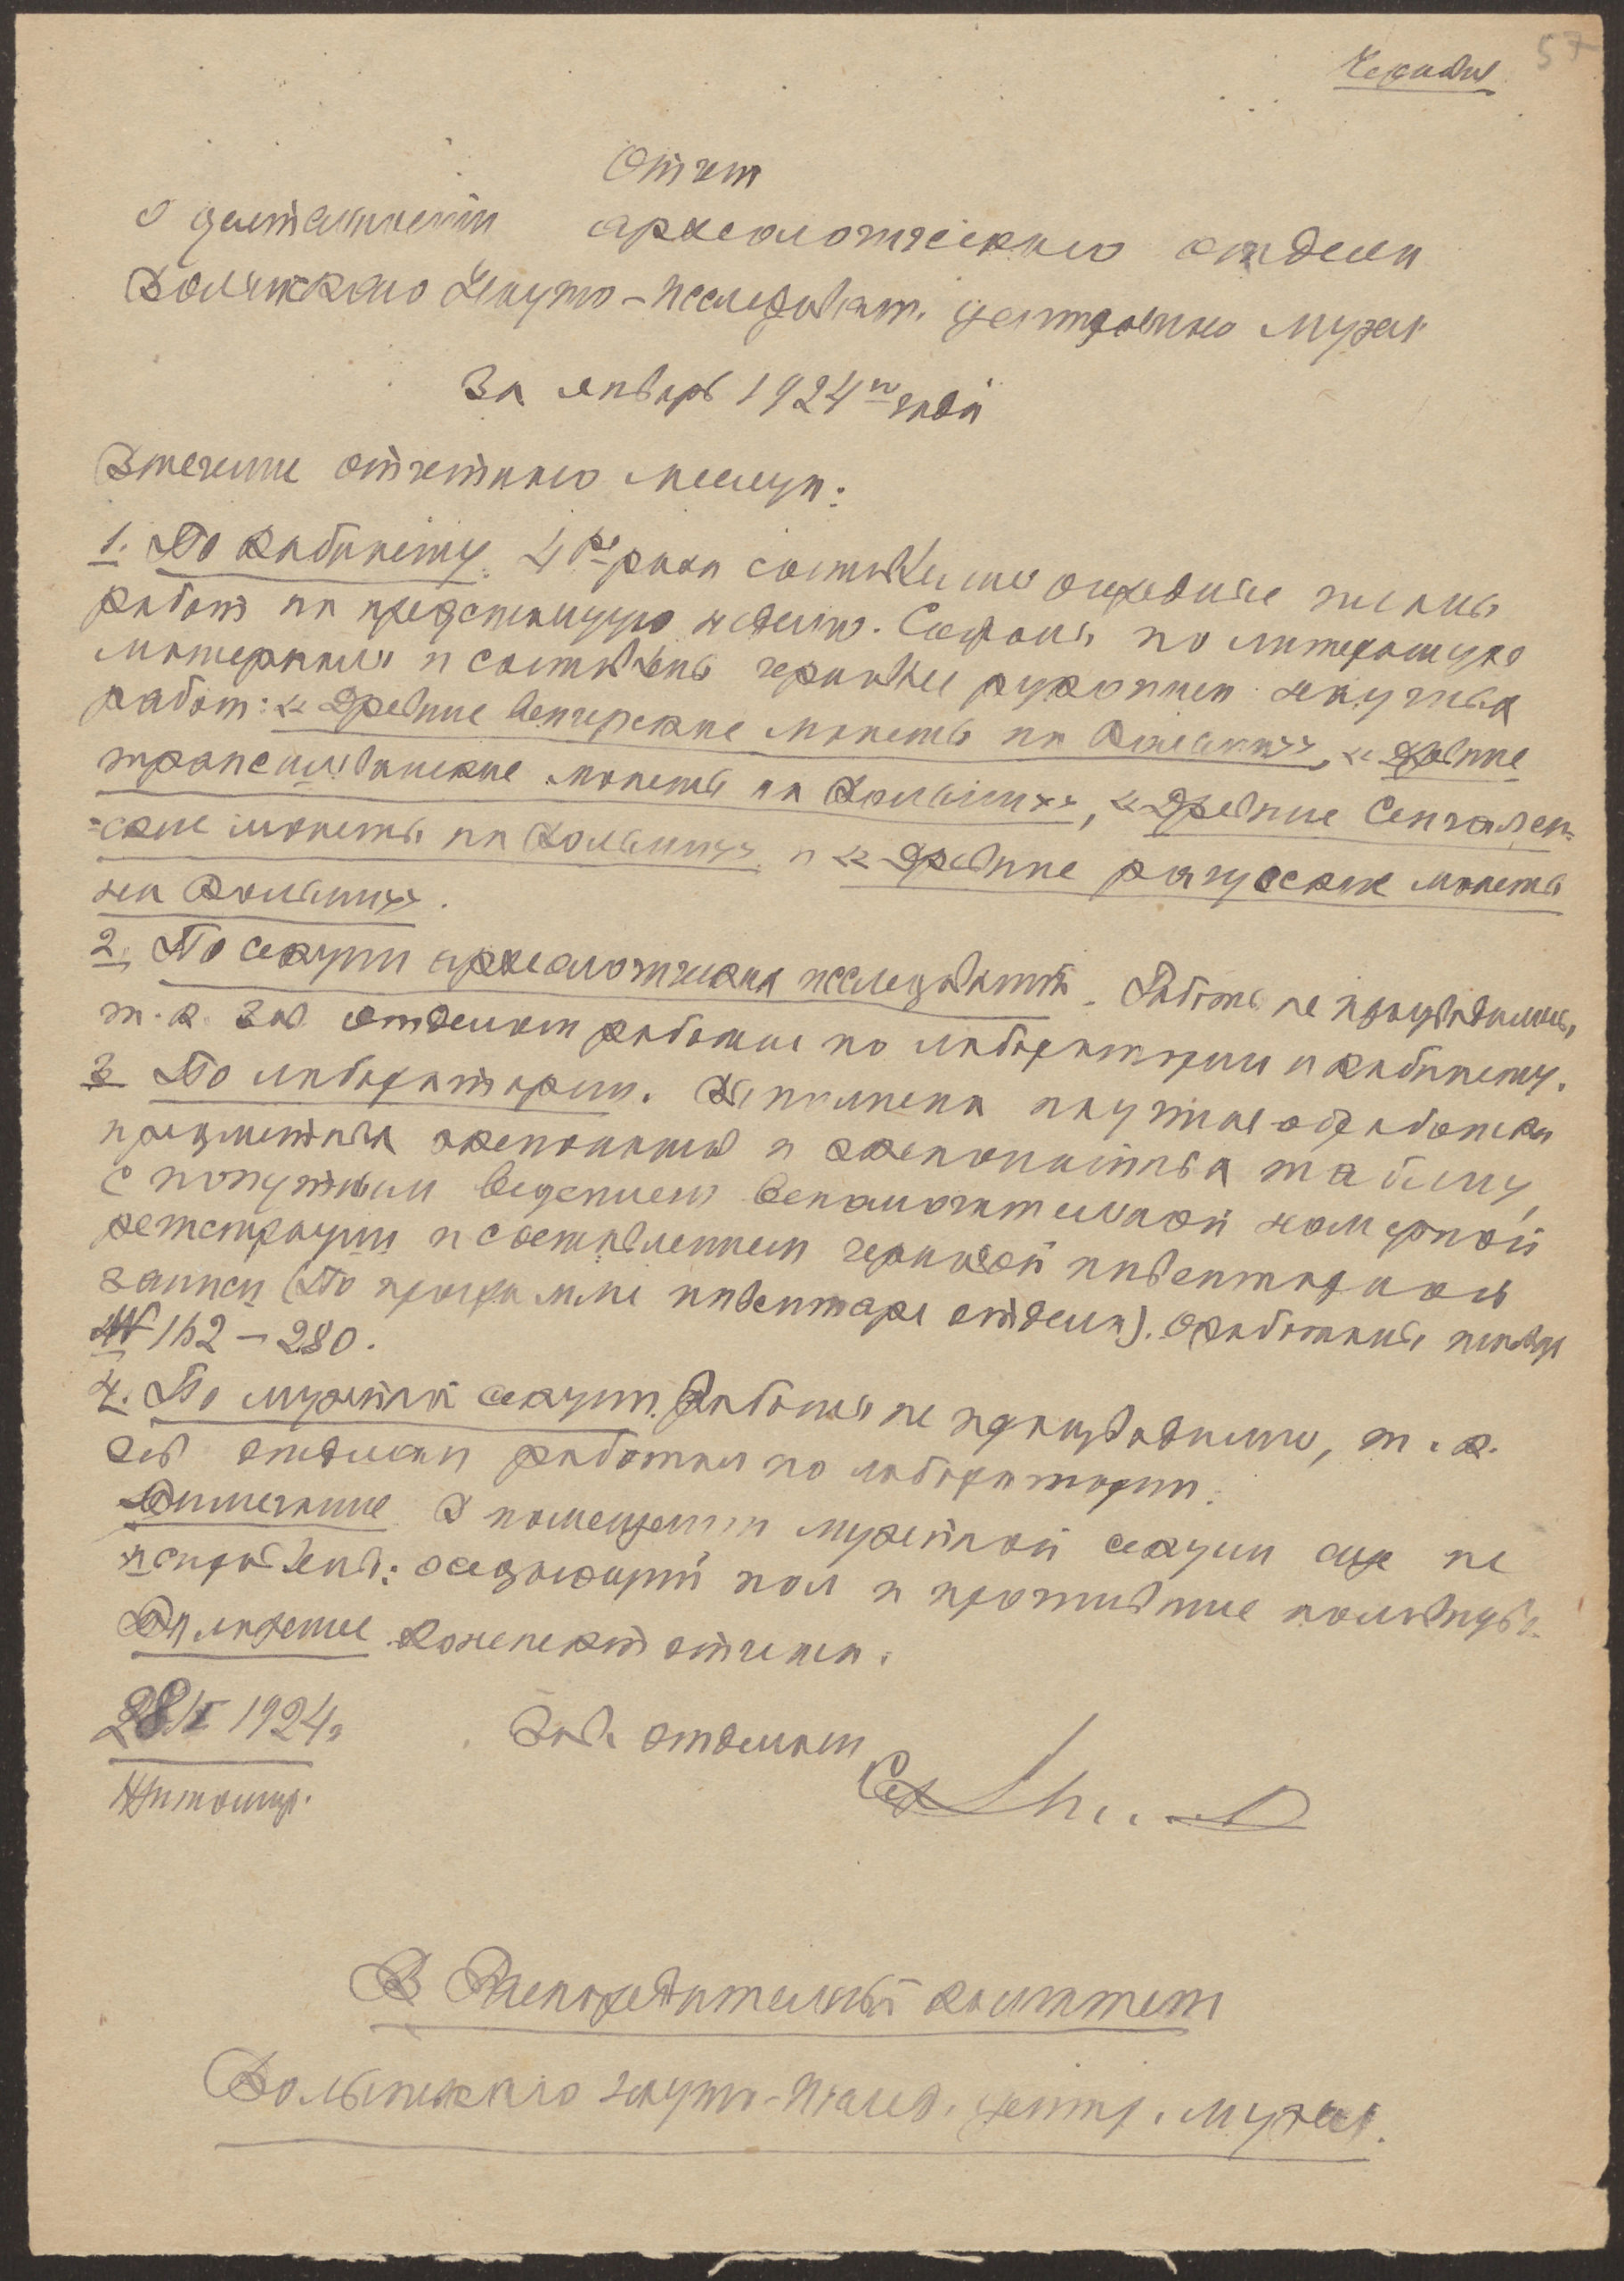 Черновик 57
Отчет
о деятельности археологического отдела
Волынского Научно-Исследоват. Центрального Музея
За январь 1924го года
В течение отчетного месяца:
1. По кабинету. 4 раза составлены очередные планы
работ на предстоящую неделю. Собраны по литературе
материалы и составлены черновые рукописи научных
работ: «Древние венгерские монеты на Волыни», «Древние
трансильванские монеты на Волыни», «Древние
ские монеты на Волыни» и «Древние рагузские монеты
на Волыни».
2. По секции археологических исследований. Работы не производились,
т.к. Зав отделом работал по лаборатории и кабинету.
3 По лаборатории. Выполнена научная обработка
предметных экспонатов и экспонатных таблиц,
с попутным ведением вспомогательной номерной
регистрации и составлением черновой инвентарной
записи (По программе инвентаря отдела). Обработаны номера
№ 162 – 280.
4. По музейной секции. Работы не производились, т.к.
Зав отделом работал по лаборатории.
Примечание В помещении музейной секции еще не
исправлены: оседающий пол и прогнившие
Приложение конспект отчета.
28/I 1924г
Житомир.
Зав. отделом
В Распорядительный комитет
Волынского научно-Исслед. центр. музея.